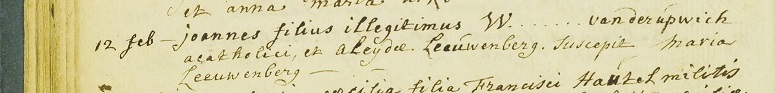 et anna maria
12 feb - joannes filius illegitimus W....... vanderupwich
acatholici, et Aleydæ Leeúwenberg. Suscepit Maria
Leeuwenberg —
filia Francisci Haútel militis